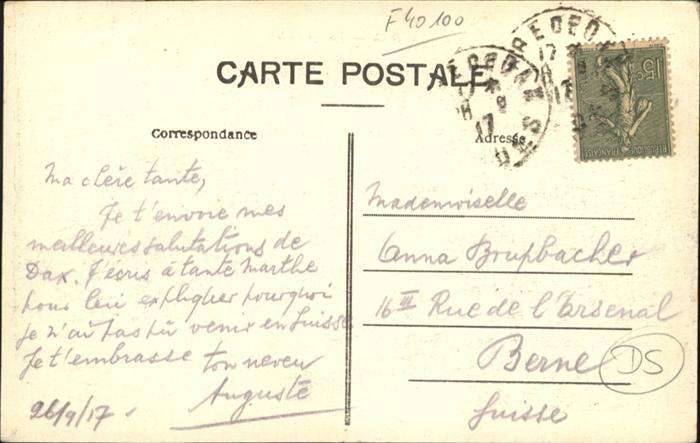 F40100
CARTE POSTALE
Correspondance
Ma chère tante,
Je t'envoie mes
meilleures salutations de
Dax. J'écris à tante Marthe
pour lui expliquer pourquoi
je n'ai pas pu venir en Suisse
Je t'embrasse ton neveu
Auguste
26/9/17
Adresse
Mademoiselle
Anna Brupbacher
16III Rue de l'Arsenal
Berne
Suisse
DS
15c
REPUBLIQUE FRANÇAISE
17